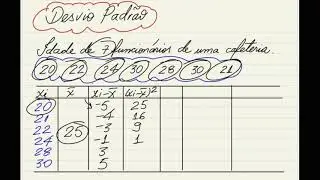 Desvio Padrão
Idade de 7 funcionários de uma cafeteria.
20 22 24 30 28 30 21
xi x̄ xi-x̄ (xi-x̄)²
20 -5 25
21 -4 16
22 25 -3 9
24 -1 1
28 3
30 5